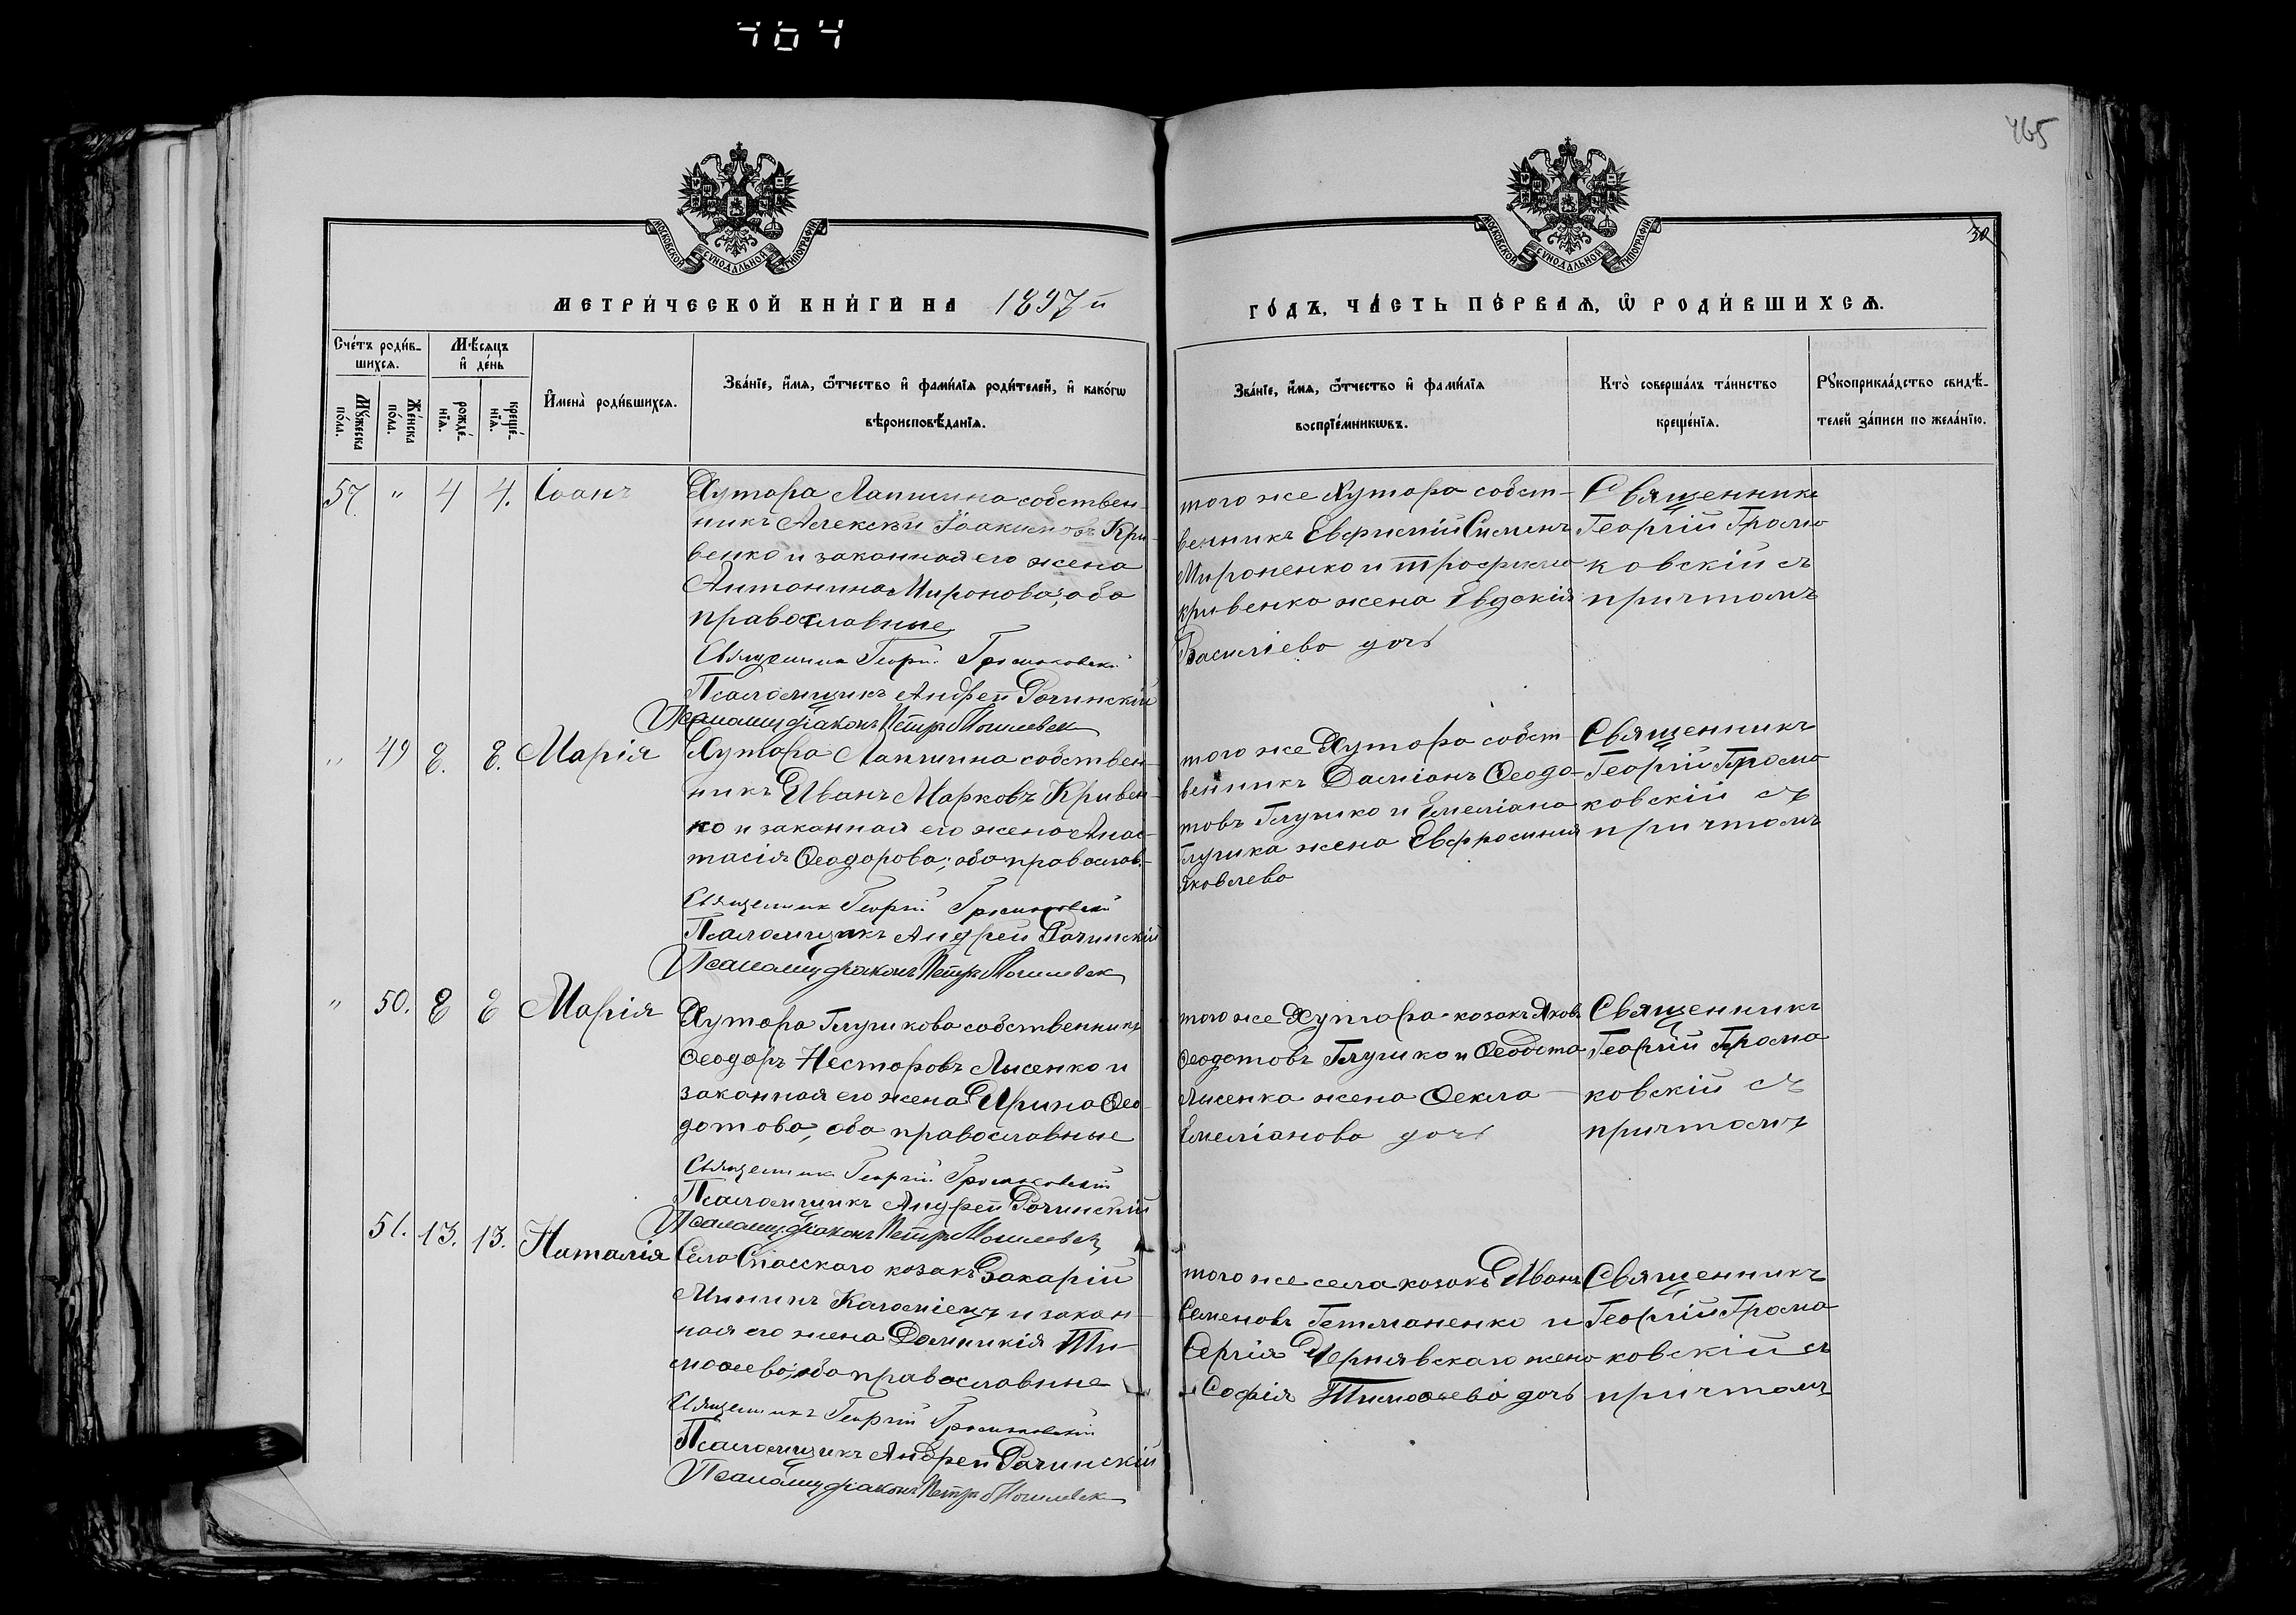 464
465
30
МОСКОВСКОЙ СУНОДАЛЬНОЙ ТИПОГРАФІИ
МОСКОВСКОЙ СУНОДАЛЬНОЙ ТИПОГРАФІИ
МЕТРИ́ЧЕСКОЙ КНИ́ГИ НА 1897 й
ГО́ДЪ, ЧА́СТЬ ПЕ́РВАѦ, Ѽ РОДИ́ВШИХСѦ.
Сче́тъ роди́в-
шихсѧ.
Мꙋ́жеска по́ла.
Же́нска по́ла.
Мѣ́сѧцъ и҆ де́нь
рожде́-нїѧ.
креще́-нїѧ.
И҆мена̀ роди́вшихсѧ.
Зва́нїе, и҆́мѧ, ѻ҆́тчество и҆ фами́лїѧ роди́телей, и҆ како́гѡ
вѣроисповѣ́данїѧ.
Зва́нїе, и҆́мѧ, ѻ҆́тчество и҆ фами́лїѧ
воспрїе́мникѡвъ.
Кто̀ соверша́лъ та́инство
креще́нїѧ.
Рꙋкоприкла́дство свидѣ́-
телей за́писи по жела́нїю.
57 " 4 4. Іоанъ
Хутора Лапшина собствен-
никъ Алексѣй Іоакимовъ Кри-
венко и законная его жена
Антонина Миронова; оба
православные
Священникъ Георгій
Псаломщикъ Андрей Рачинскій
Псаломщ. діаконъ Петръ
того же Хутора собст-
венникъ Евфимій Симонъ
Мироненко и Трофима
кривенка жена Евдокія
Василіева дочь
Священникъ
Георгій Грома
ковскій съ
причтомъ
" 49 8. 8. Марія
Хутора Лапшина собствен-
никъ Иванъ Марковъ Кривен-
ко и законная его жена Анас-
тасія Ѳеодорова; оба православ.
Священникъ Георгій
Псаломщикъ Андрей Рачинскій
Псаломщ. діаконъ Петръ
того же Хутора собст-
венникъ Даміанъ Ѳеодо-
товъ Глушко и Емеліана
Глушка жена Евфросинія
Яковлева
Священникъ
Георгій Грома
ковскій съ
причтомъ
" 50. 8 8 Марія
Хутора Глушкова собственникъ
Ѳеодоръ Несторовъ Лысенко и
законная его жена Ирина Ѳео-
дотова, оба православные
Священникъ Георгій
Псаломщикъ Андрей Рачинскій
Псаломщ. діаконъ Петръ
того же Хутора козакъ Яковъ
Ѳеодотовъ Глушко и Ѳеодота
Лысенка жена Ѳекла
Емеліанова дочь
Священникъ
Георгій Грома
ковскій съ
причтомъ
51. 13. 13. Наталія
Села Спасскаго козакъ Захарій
Мининъ Каломіецъ и закон-
ная его жена Домникія Ти-
моѳеева; оба православные
Священникъ Георгій
Псаломщикъ Андрей Рачинскій
Псаломщ. діаконъ Петръ
того же села козакъ Иванъ
Семеновъ Гетманенко и
Сергія Чернявскаго жена
Софія Тимоѳеева дочь
Священникъ
Георгій Грома
ковскій съ
причтомъ